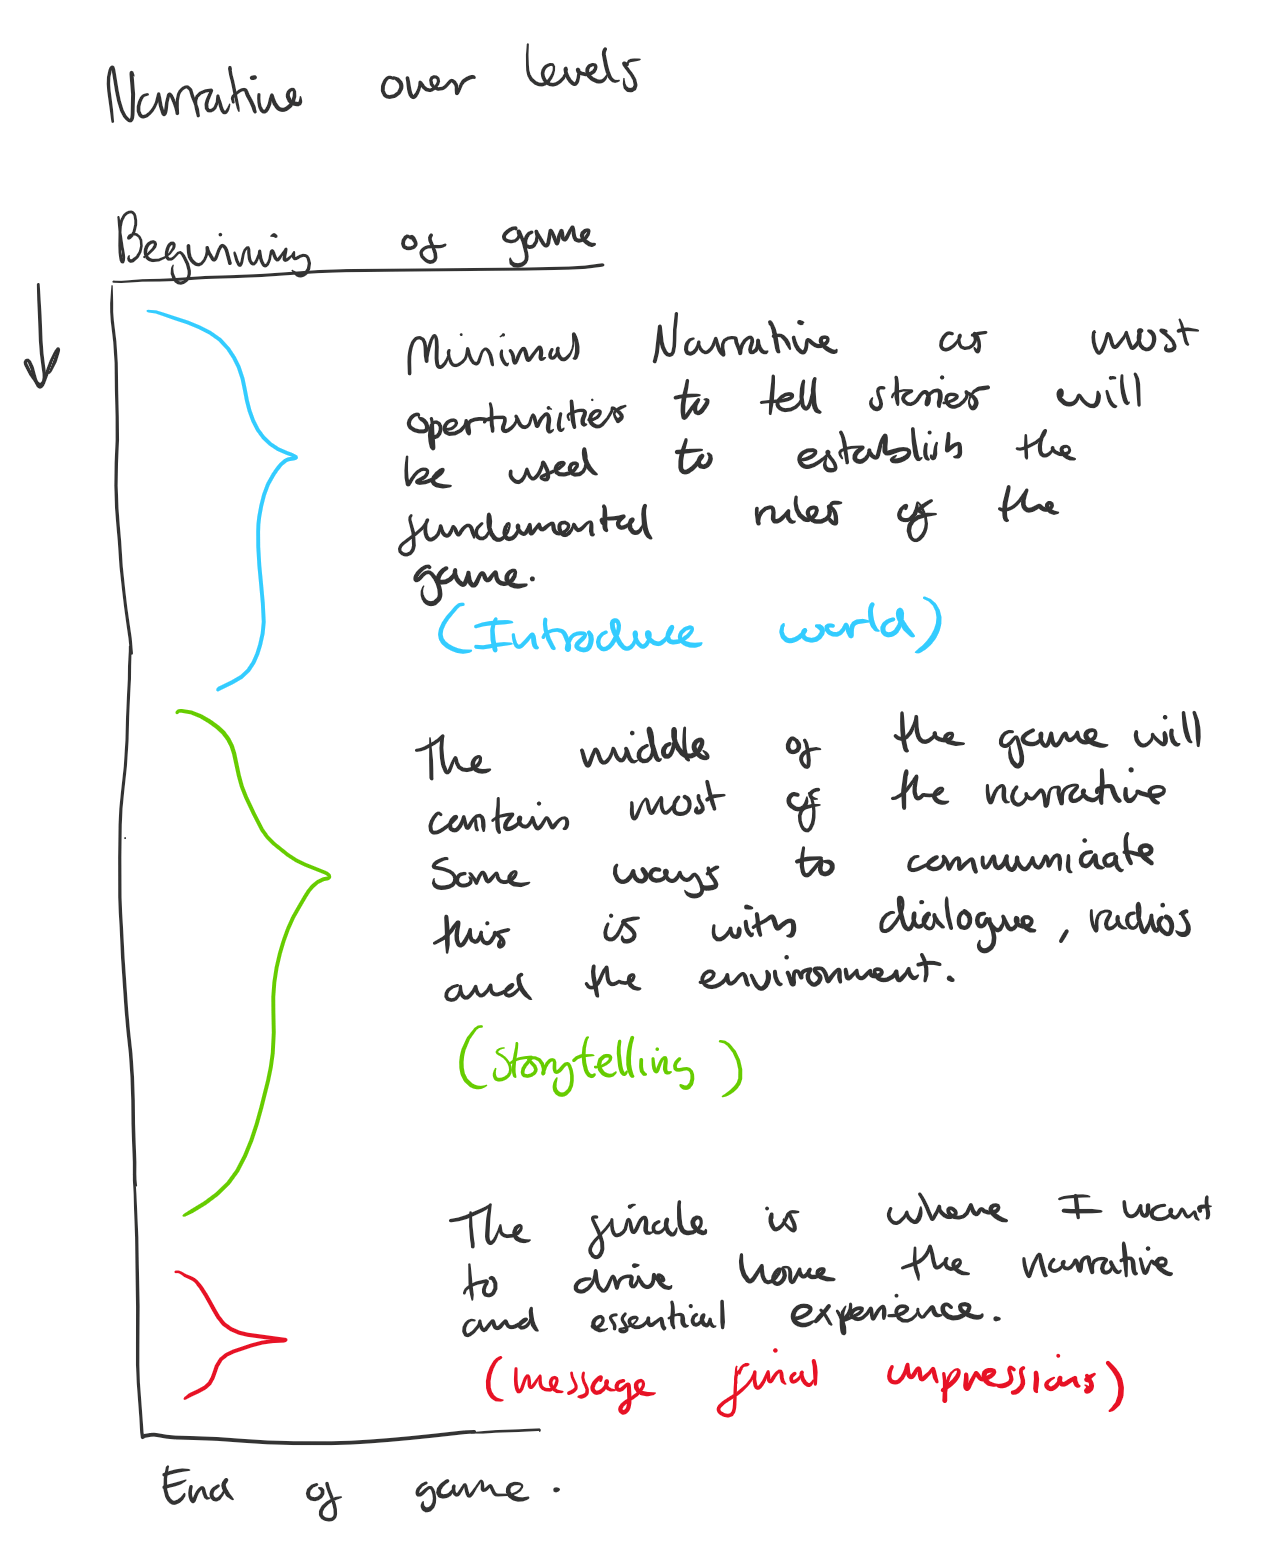 Narrative over levels
Beginning of game
Minimal Narrative as most
oportunities to tell stories will
be used to establish the
fundamental rules of the
game.
(Introduce world)
The middle of the game will
contain most of the narrative
Some ways to communicate
this is with dialogue, radios
and the environment.
(storytelling)
The finale is where I want
to drive home the narrative
and essential experience.
(message final impressions)
End of game.